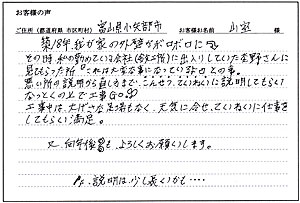 お客様の声
ご住所(都道府県 市区町村) 富山県小矢部市 お客様お名前 山室 様
築18年我が家の外壁がボロボロに
その時、私の勤めている会社(鉄工所)に出入りしていた
見てもらった所「これは大変な事になっている」との事。
悪い所の説明から直し方まで、こんせつていねいに説明してもらい
なっとくの上で工事GO!!
工事中は、大げさな足場もなく、元気に全せ、ていねいに仕事を
してもらい満足。
又、何年後もよろしくお願いします。
P.S. 説明は少し長いかも…